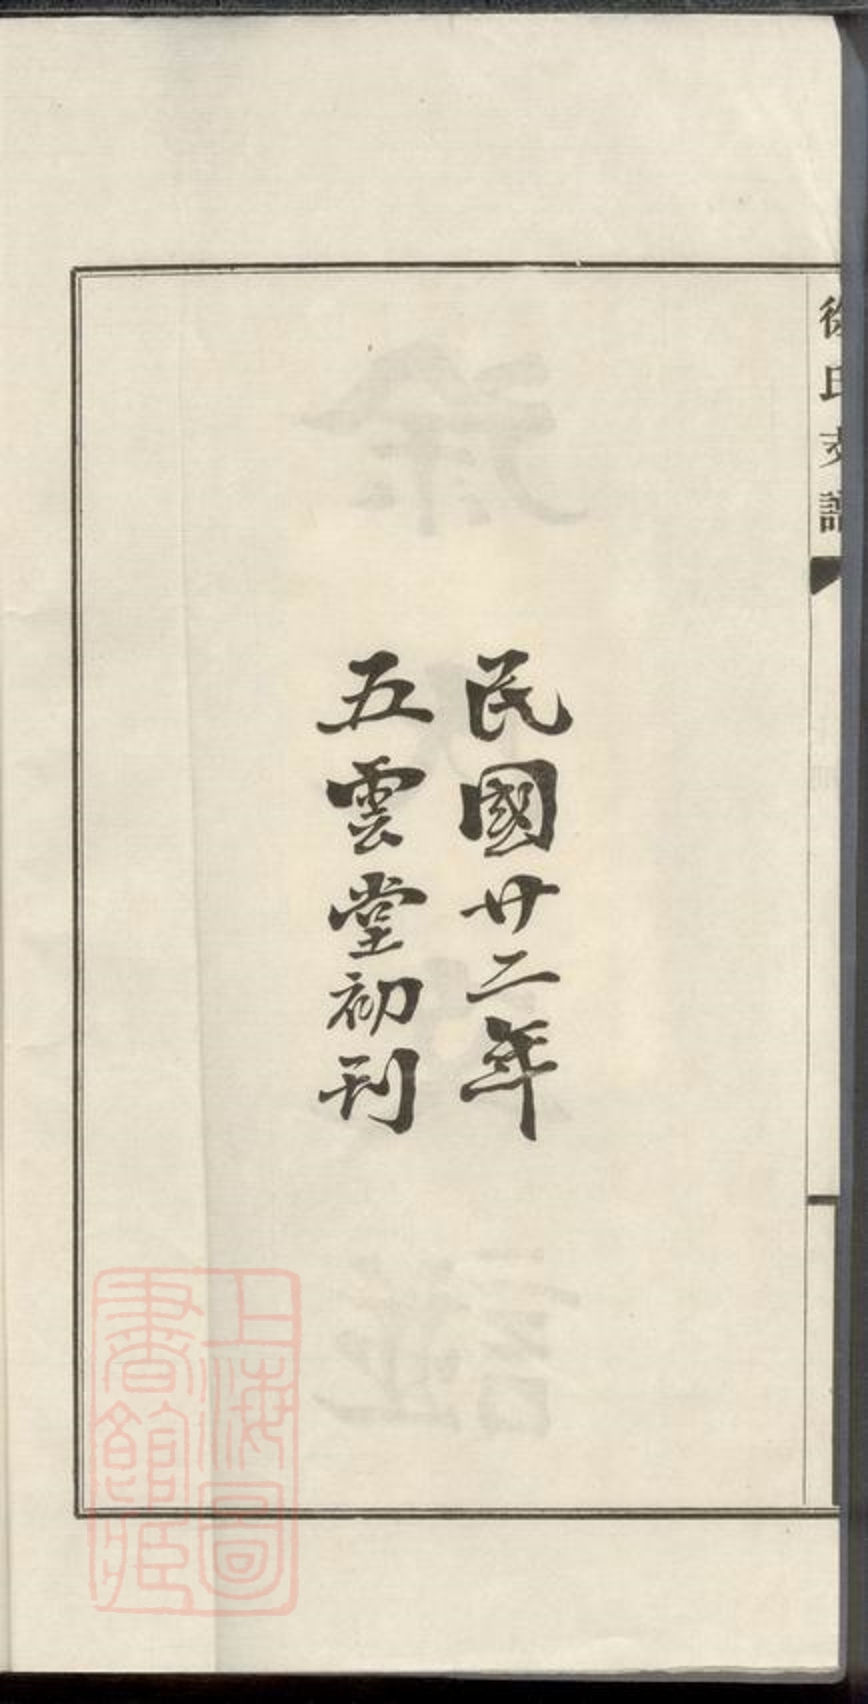 徐氏支譜
民國廿二年
五雲堂初刊
上海圖
書館臧